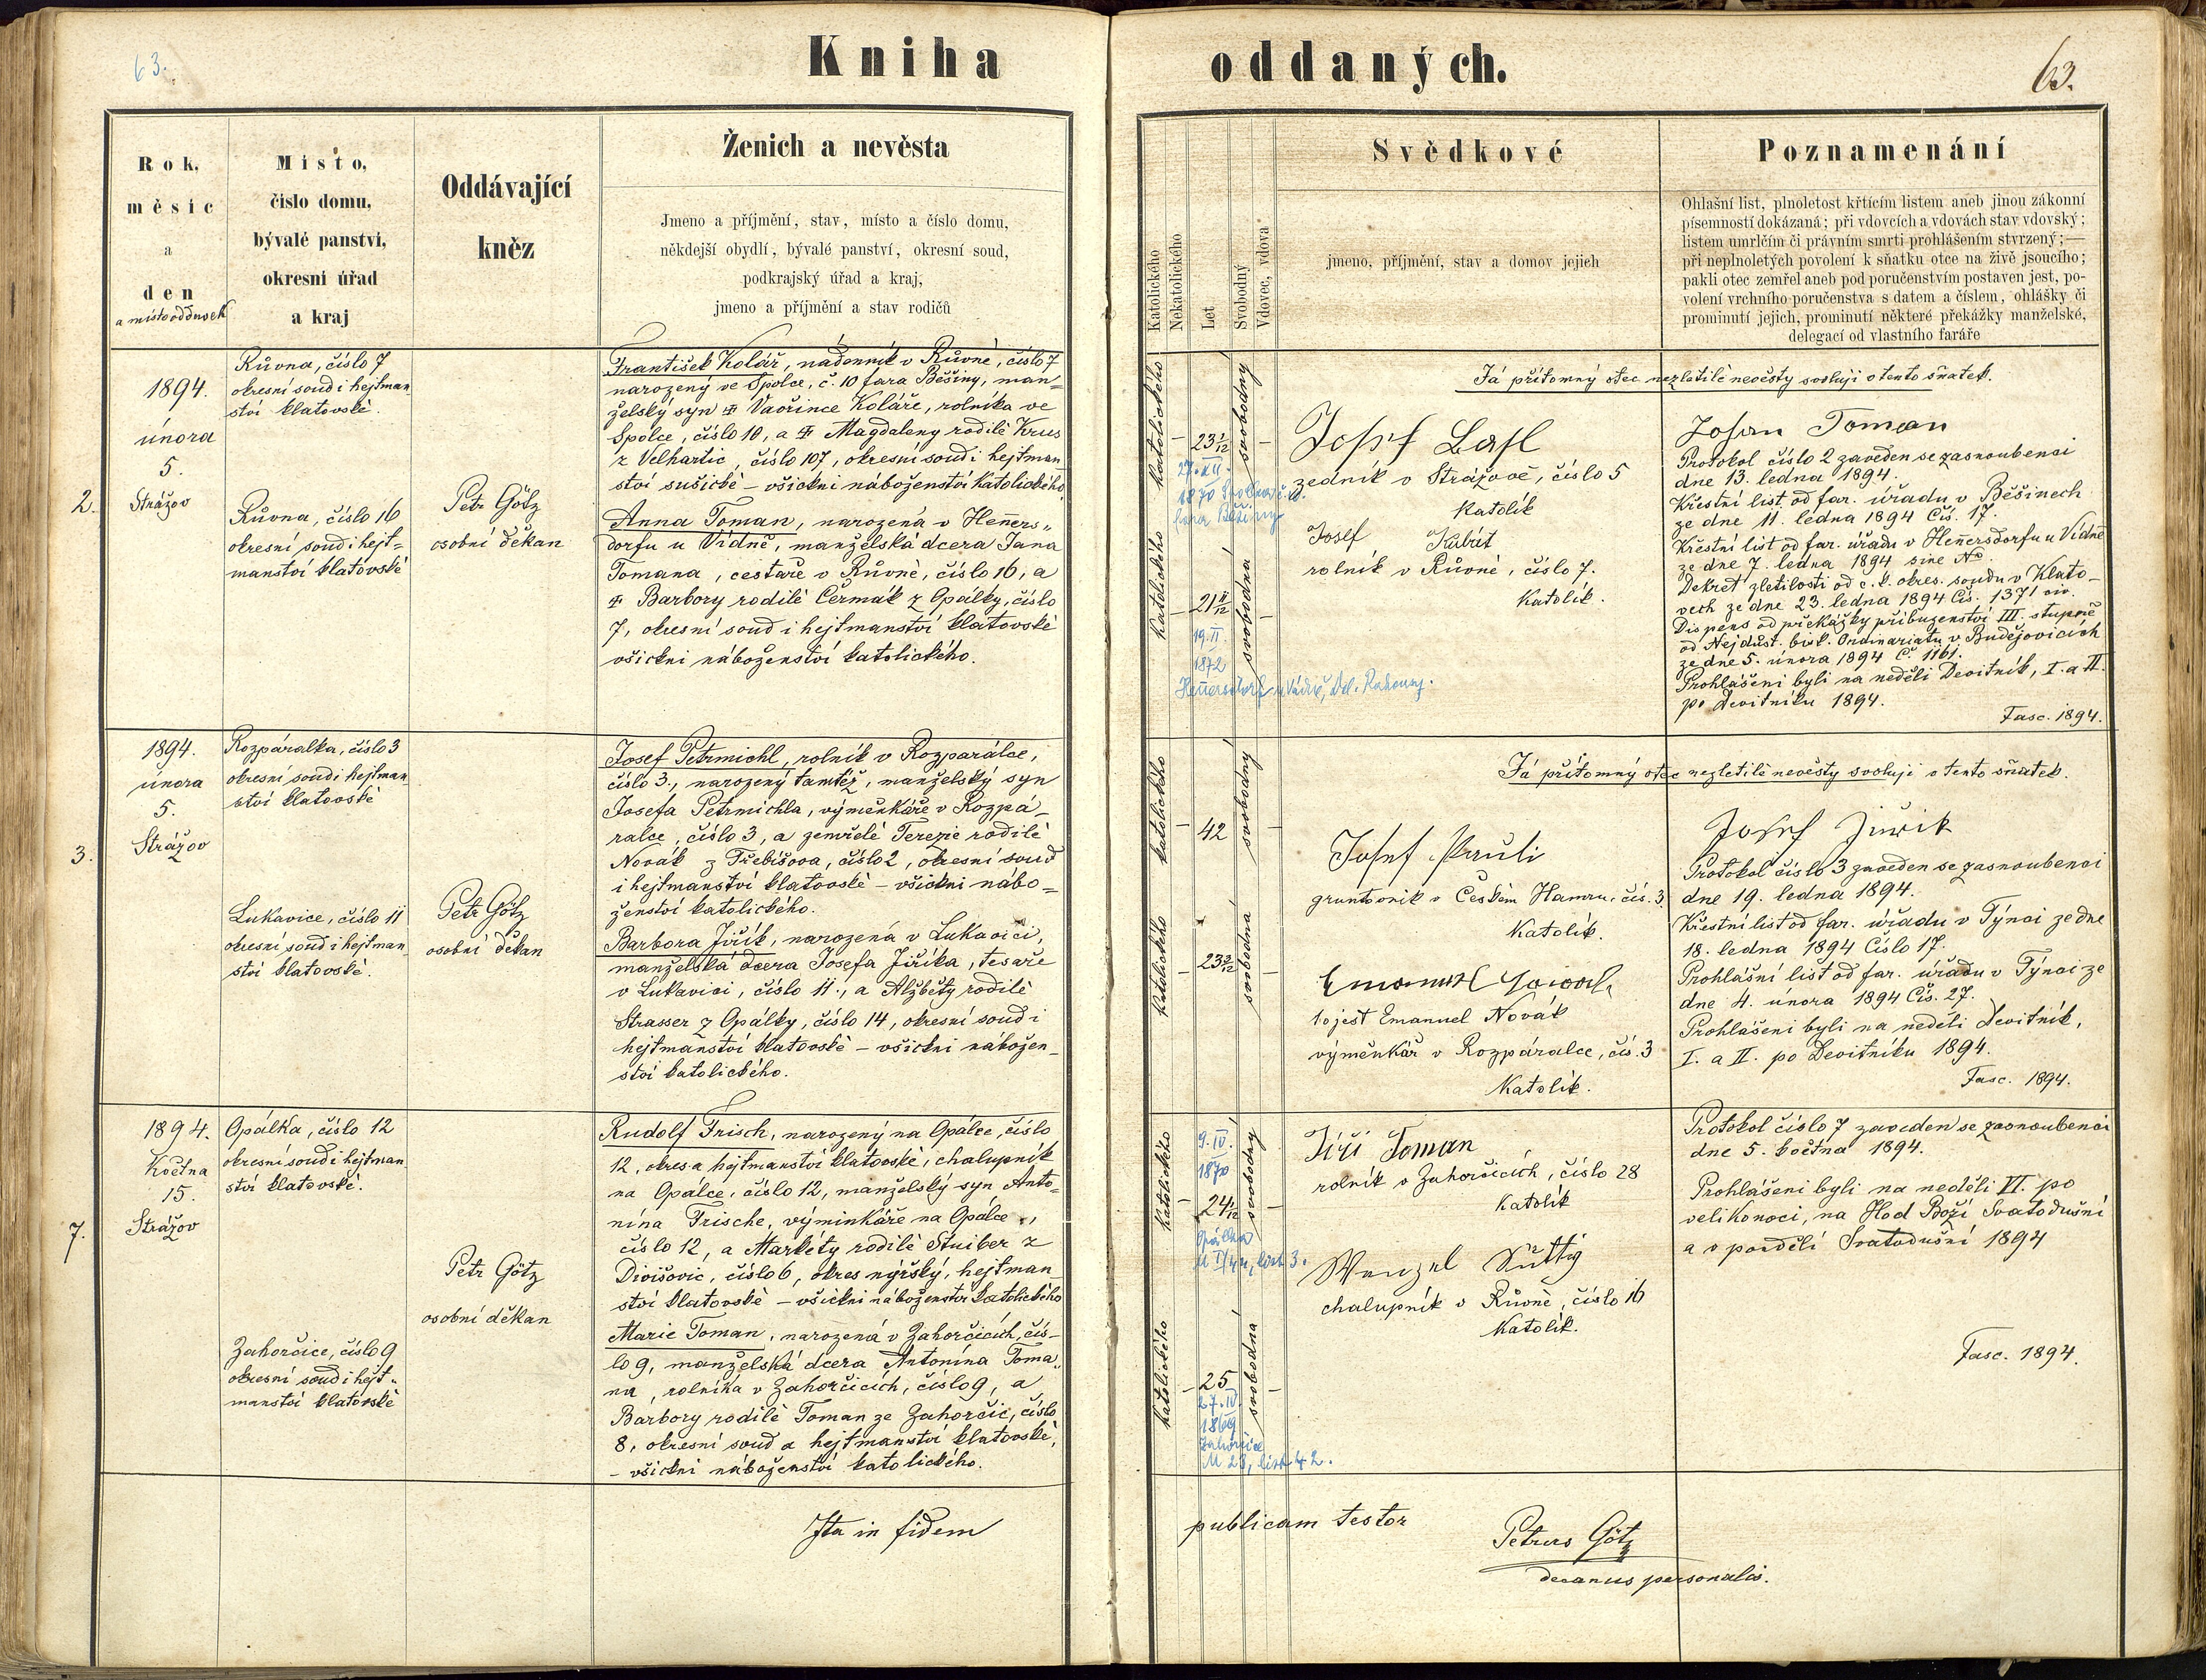 63.
Kniha
oddaných.
63.
Rok,
měsíc
a
den
a místo oddavek
Místo,
číslo domu,
bývalé panství,
okresní úřad
a kraj
Oddávající
kněz
Ženich a nevěsta
Jmeno a příjmění, stav, místo a číslo domu,
někdejší obydlí, bývalé panství, okresní soud,
podkrajský úřad a kraj,
jmeno a příjmění a stav rodičů
Katolického
Nekatolického
Let
Svobodný
Vdovec, vdova
Svědkové
jmeno, příjmění, stav a domov jejich
Poznamenání
Ohlašní list, plnoletost křtícím listem aneb jinou zákonní
písemností dokázaná; při vdovcích a vdovách stav vdovský;
listem umrlčím či právním smrti prohlášením stvrzený;—
při neplnoletých povolení k sňatku otce na živě jsoucího;
pakli otec zemřel aneb pod poručenstvím postaven jest, po-
volení vrchního poručenstva s datem a číslem, ohlášky či
prominutí jejich, prominutí některé překážky manželské,
delegací od vlastního faráře
2.
1894.
února
5.
Strážov
Růvna, číslo 7
okresní soud i hejtman
ství klatovské.
Růvna, číslo 16
okresní soud i hejt=
manství klatovské
Petr Götz
osobní děkan
František Kolář, nádenník v Růvně, číslo 7
narozený ve Spolce, č. 10 fara Běšiny, man=
želský syn ✠ Vavřince Koláře, rolníka ve
Spolce, číslo 10, a ✠ Magdaleny rodilé Krus
z Velhartic, číslo 107, okresní soud i hejtman
ství sušické – všickni náboženství katolického
Anna Toman, narozená v Heners„
dorfu u Vídně, manželská dcera Jana
Tomana, cestaře v Růvně, číslo 16, a
✠ Barbory rodilé Čermák z Opálky, číslo
7, okresní soud i hejtmanství klatovské
všickni náboženství katolického.
katolického
23 1/12
svobodný
27. XII.
1870 Spolka č. 10.
fara Běšiny
katolického
21 11/12
svobodná
19. II.
1872
Henersdorf u Vídně,
Já přítomný otec nezletilé nevěsty svoluji v tento sňatek.
Josef Lasl
zedník v Strážově, číslo 5
Katolík
Josef Kubrit
rolník v Růvně, číslo 7.
Katolík.
Johan Toman
Protokol číslo 2 zaveden se zasnoubenci
dne 13. ledna 1894.
Křestní list od far. úřadu v Běšinech
ze dne 11. ledna 1894 Čís. 17.
Křestní list od far. úřadu v Henersdorfu u Vídně
ze dne 7. ledna 1894 sine No
Dekret zletilosti od c. k. okres. soudu v Klato-
vech ze dne 23. ledna 1894 Čís. 1371 civ.
Dispens od překážky příbuzenství III. stupně
od Nejdůst. bisk. Ordinariatu v Budějovicích
ze dne 5. února 1894 Č. 1161.
Prohlášeni byli na neděli Devítník, I. a II.
po Devítníku 1894.
Fasc. 1894.
3.
1894.
února
5.
Strážov
Rozpáralka, číslo 3
okresní soud i hejtman
ství klatovské
Lukavice, číslo 11
okresní soud i hejtman
ství klatovské.
Petr Götz
osobní děkan
Josef Petrmichl, rolník v Rozparálce,
číslo 3., narozený tamtéž, manželský syn
Josefa Petrmichla, výměnkáře v Rozpá-
ralce, číslo 3, a zemřelé Terezie rodilé
Novák z Třebíšova, číslo 2, okresní soud
i hejtmanství klatovské – všickni nábo=
ženství katolického.
Barbora Jiřík, narozená v Lukavici,
manželská dcera Josefa Jiříka, tesaře
v Lukavici, číslo 11., a Alžběty rodilé
Strasser z Opálky, číslo 14, okresní soud i
hejtmanství klatovské – všickni nábožen-
ství katolického.
katolického
42
svobodný
katolického
svobodná
Já přítomný otec nezletilé nevěsty svoluji v tento sňatek.
Josef Pauli
gruntovník v Českém Hamru, čís. 3.
Katolík.
Emanuel Nowak
to jest Emanuel Novák
výměnkář v Rozpáralce, čís. 3
Katolík.
Josef Jiřik
Protokol číslo 3 zaveden se zasnoubenci
dne 19. ledna 1894.
Křestní list od far. úřadu v Týnci ze dne
18. ledna 1894 Číslo 17.
Prohlášní list od far. úřadu v Týnci ze
dne 4. února 1894 Čís. 27.
Prohlášeni byli na neděli Devítník,
I. a II. po Devítníku 1894.
Fasc. 1894.
7.
1894.
Května
15.
Strážov
Opálka, číslo 12
okresní soud i hejtman
ství klatovské.
Zahorčice, číslo 9
okresní soud i hejt„
manství klatovské
Petr Götz
osobní děkan
Rudolf Frisch, narozený na Opálce, číslo
12, okres a hejtmanství klatovské, chalupník
na Opálce, číslo 12, manželský syn Anto-
nína Frische, výminkáře na Opálce,
číslo 12, a Markéty rodilé Stuiber z
Divišovic, číslo 6, okres nýrský, hejtman
ství klatovské – všickni náboženství katolického
Marie Toman, narozená v Zahorčicích, čís-
lo 9, manželská dcera Antonína Toma„
na, rolníka v Zahorčicích, číslo 9, a
Barbory rodilé Toman ze Zahorčic, číslo
8, okresní soud a hejtmanství klatovské,
– všickni náboženství katolického.
katolického
9. IV.
1870
24 1/12
svobodný
Opálka
katolického
25
svobodná
27. IV.
1869
Zahorčice
M 23, list 42.
Jiří Toman
rolník v Zahorčicích, číslo 28
Katolík
Wenzel Küttig
chalupník v Růvně, číslo 16
Katolík.
Protokol číslo 7 zaveden se zasnoubenci
dne 5. května 1894.
Prohlášeni byli na neděli VI. po
velikonoci, na Hod Boží Svatodušní
a v pondělí Svatodušní 1894
Fasc. 1894.
Ita in fidem
publicam testor
Petrus Götz
decanus personalis.